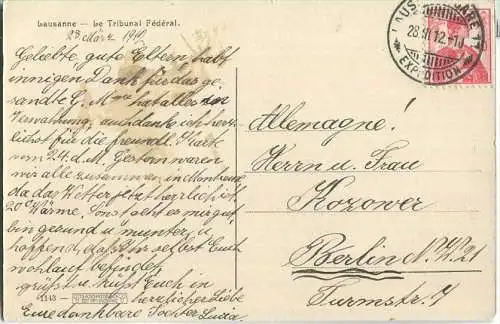 Lausanne — Le Tribunal Fédéral.
28 März 1912
Geliebte, gute Eltern, habt
innigen Dank für das ge-
sandte G. hat alles in
Verwahrung, auch danke ich herz-
lichst für die freundl. Karte
vom 24. d. M. Gestern waren
wir alle zusammen in Montreux
da das Wetter jetzt herrlich ist,
20° Wärme. Sonst geht es mir gut,
bin gesund u. munter, u.
hoffend, daß Ihr selbst Euch
wohlauf befindet,
grüßt u. küßt Euch in
herzlicher Liebe
Eure dankbare Tochter Lucia.
1143
LAUSANNE GARE
28. III 12. – 11
EXPEDITION
Allemagne!
Herrn u. Frau
Kozower
Berlin N.W. 21
Turmstr. 7